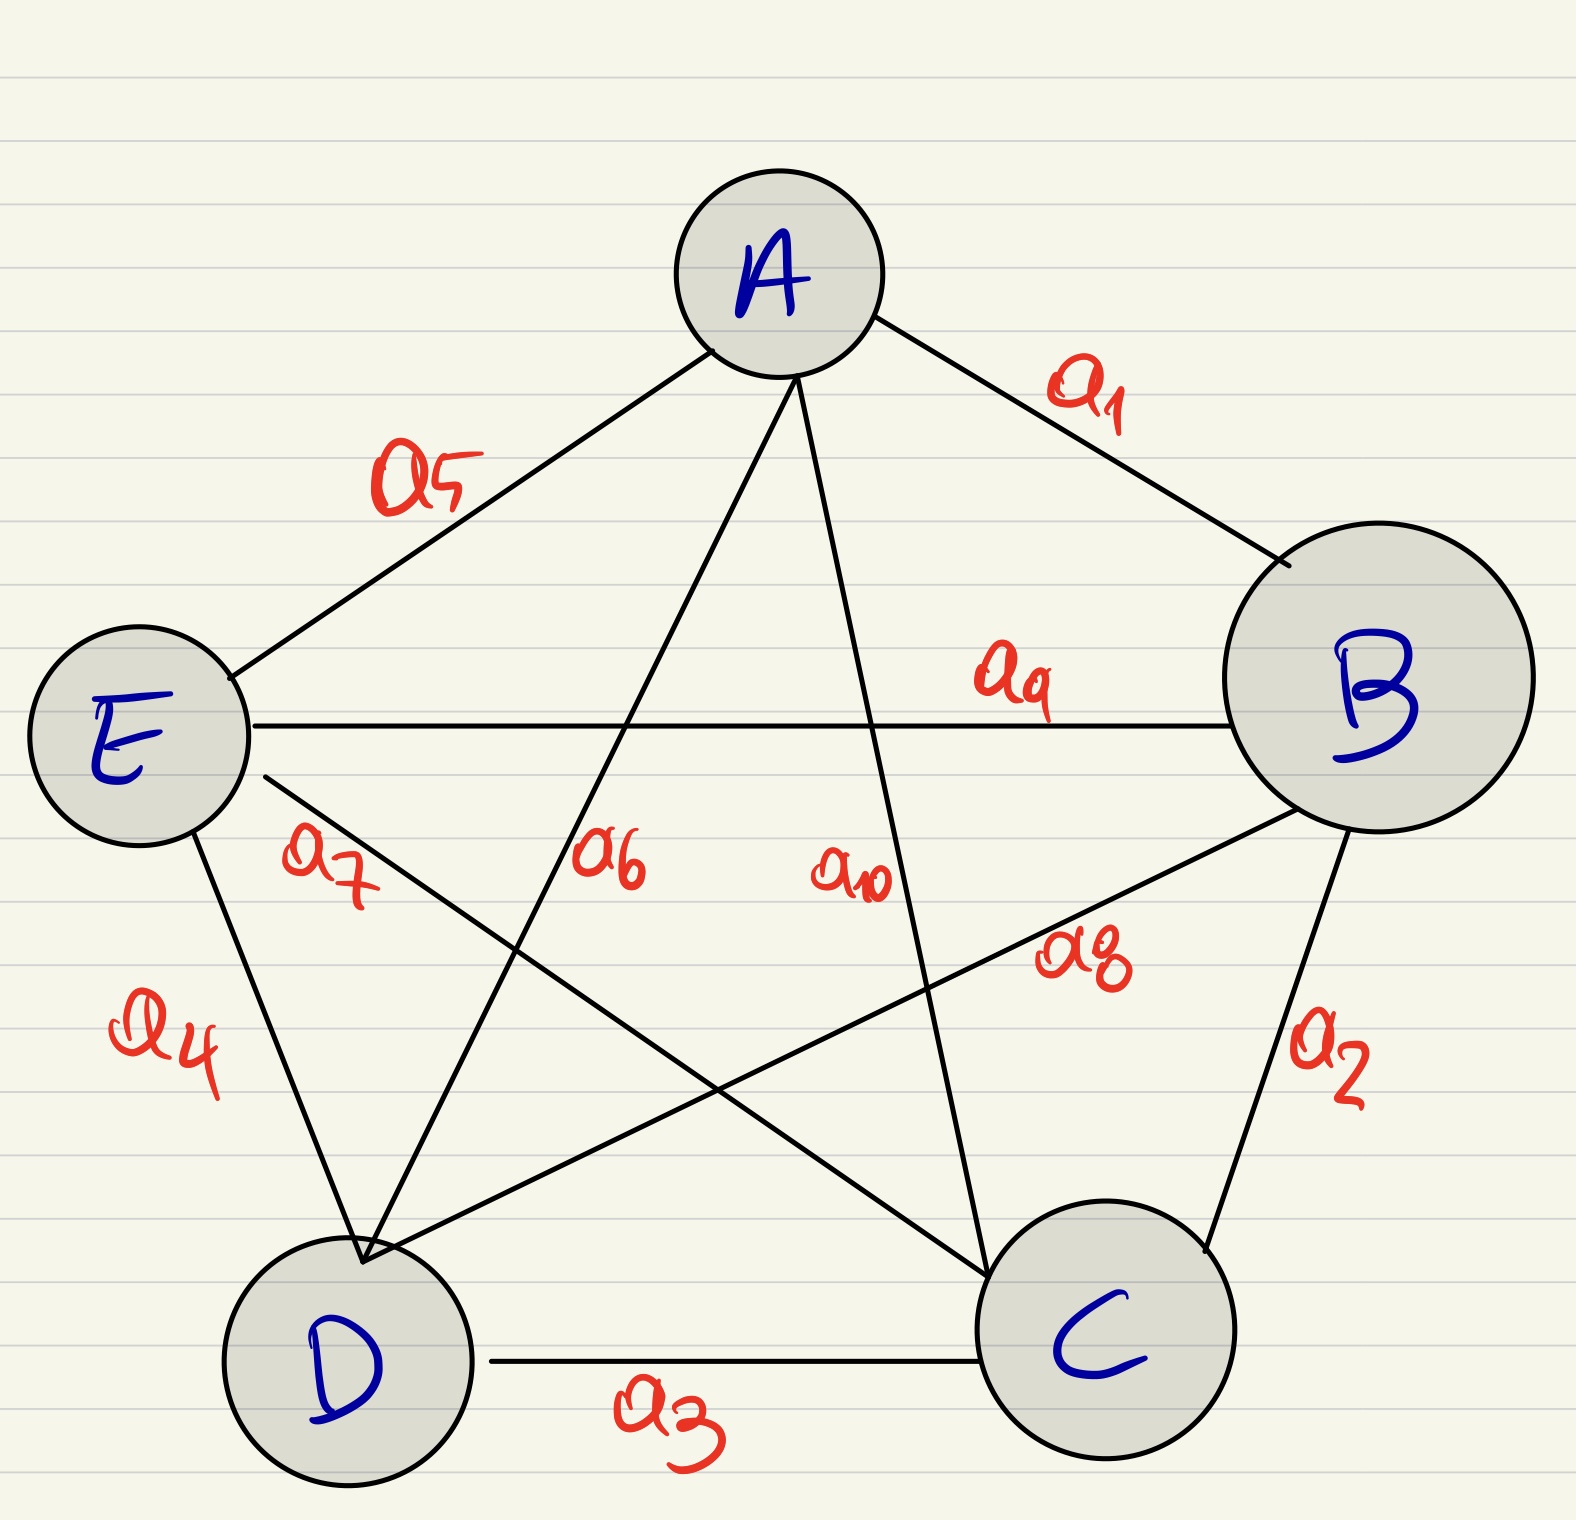 A
a1
a5
B
a9
E
a7
a6
a10
a8
a4
a2
C
D
a3